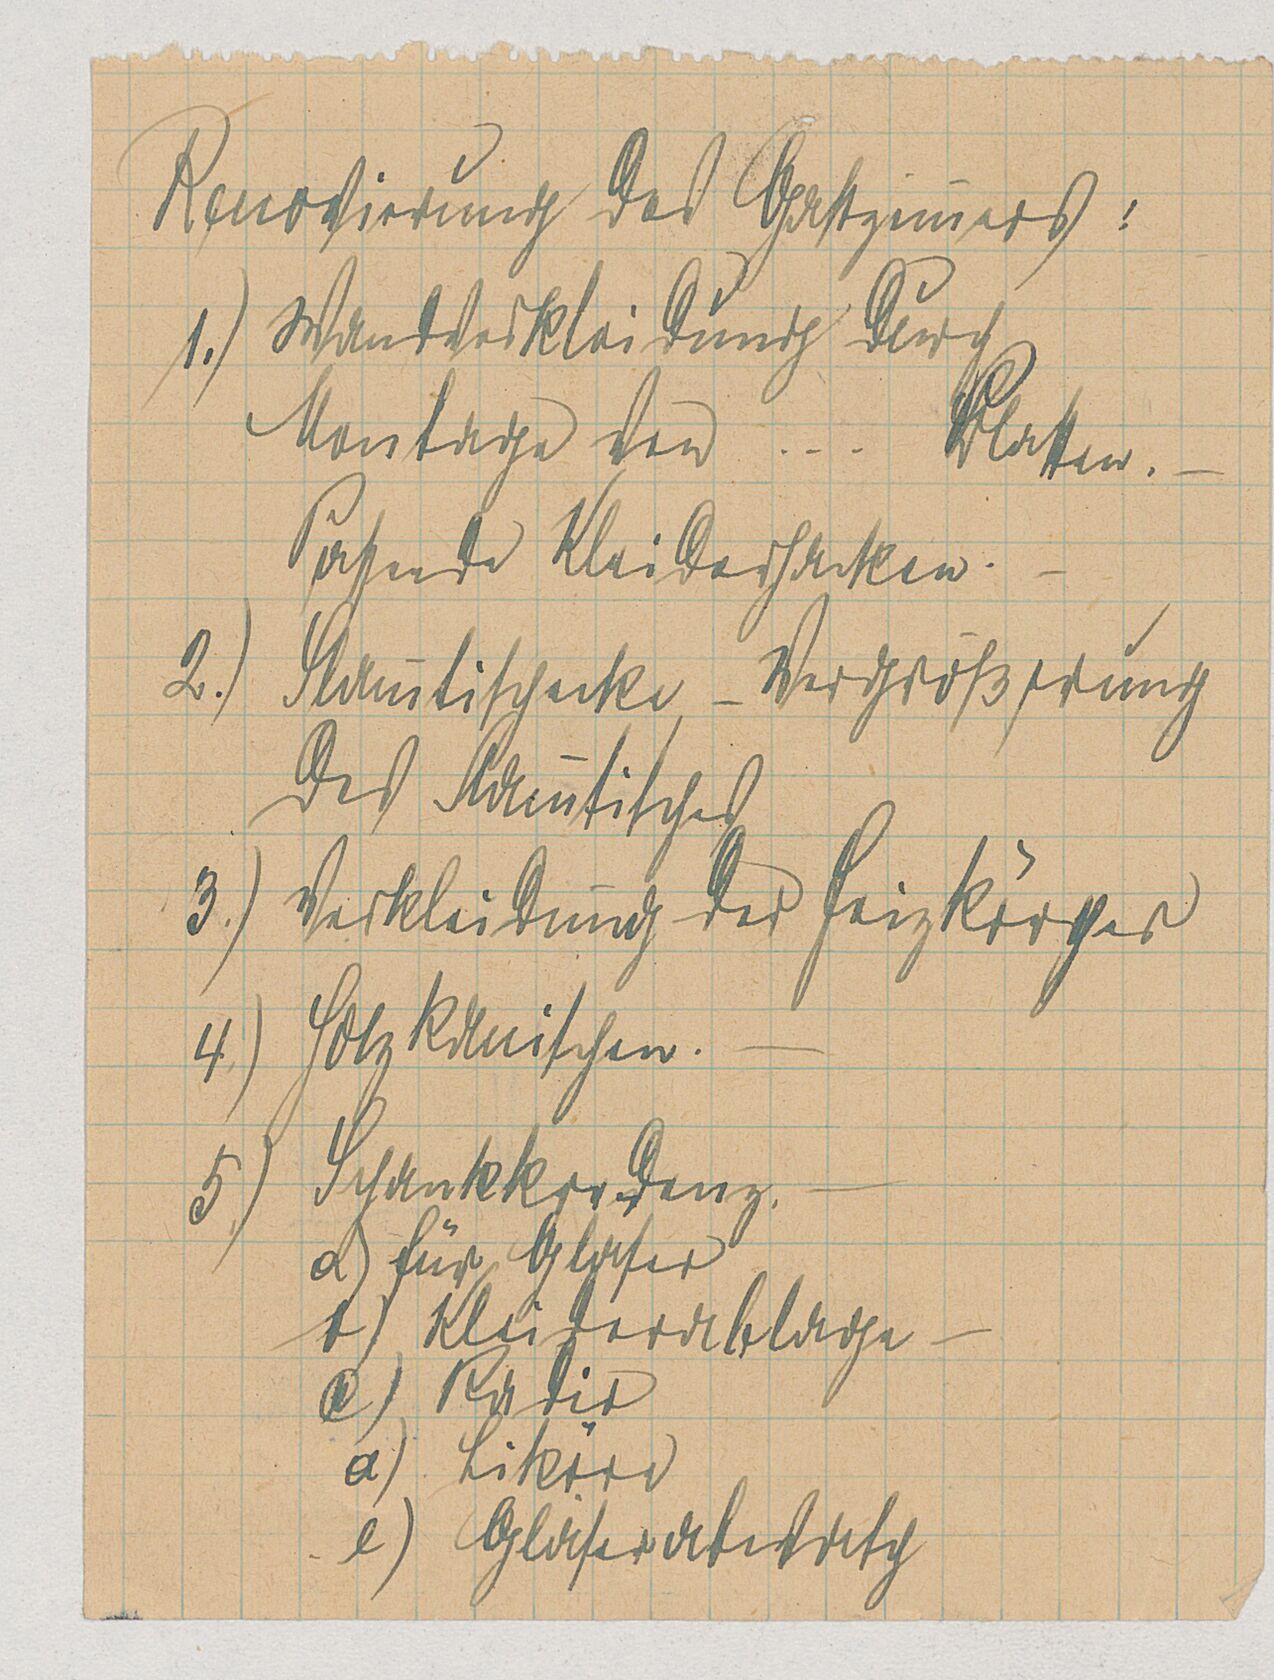 Renovierung des Gastzim̄ers:
1.) Wandverkleidung durch
Montage von ... Platten. –
Passende Kleiderhacken. –
2.) Stam̄tischecke – Vergrößerung
des Stam̄tisches
3.) Verkleidung der Heizkörper
4.) Holzkarnischen. –
5.) Schankkredenz. –
a) für Gläser
b) Kleiderablage –
c) Radio
d) Liköre
e) Gläserabwasch